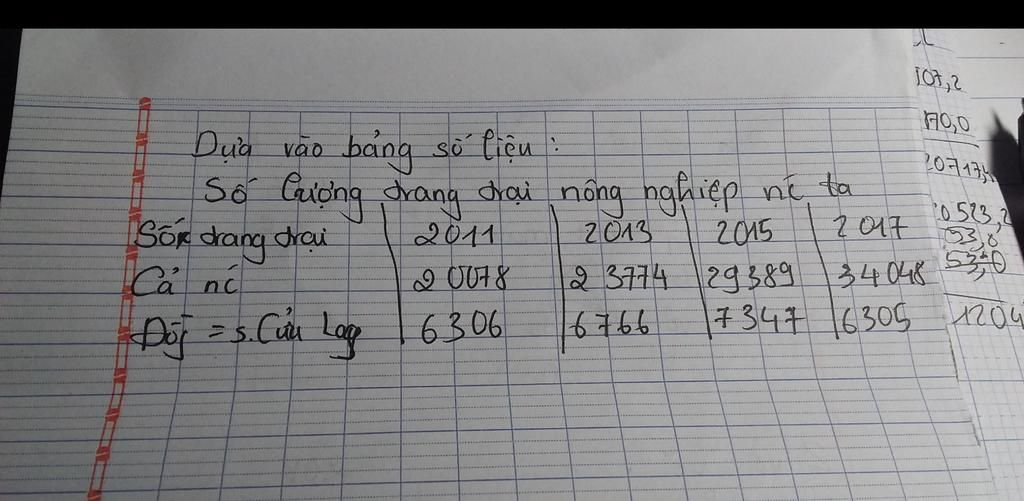 Dựa vào bảng số liệu :
Số lượng trang trại nông nghiệp nc ta
Số trang trại 2011 2013 2015 2017
Cả nc 20078 23774 29389 34048
= s. Cửu Long 6306 6766 7347 6305
107,2
170,0
53,0
1204